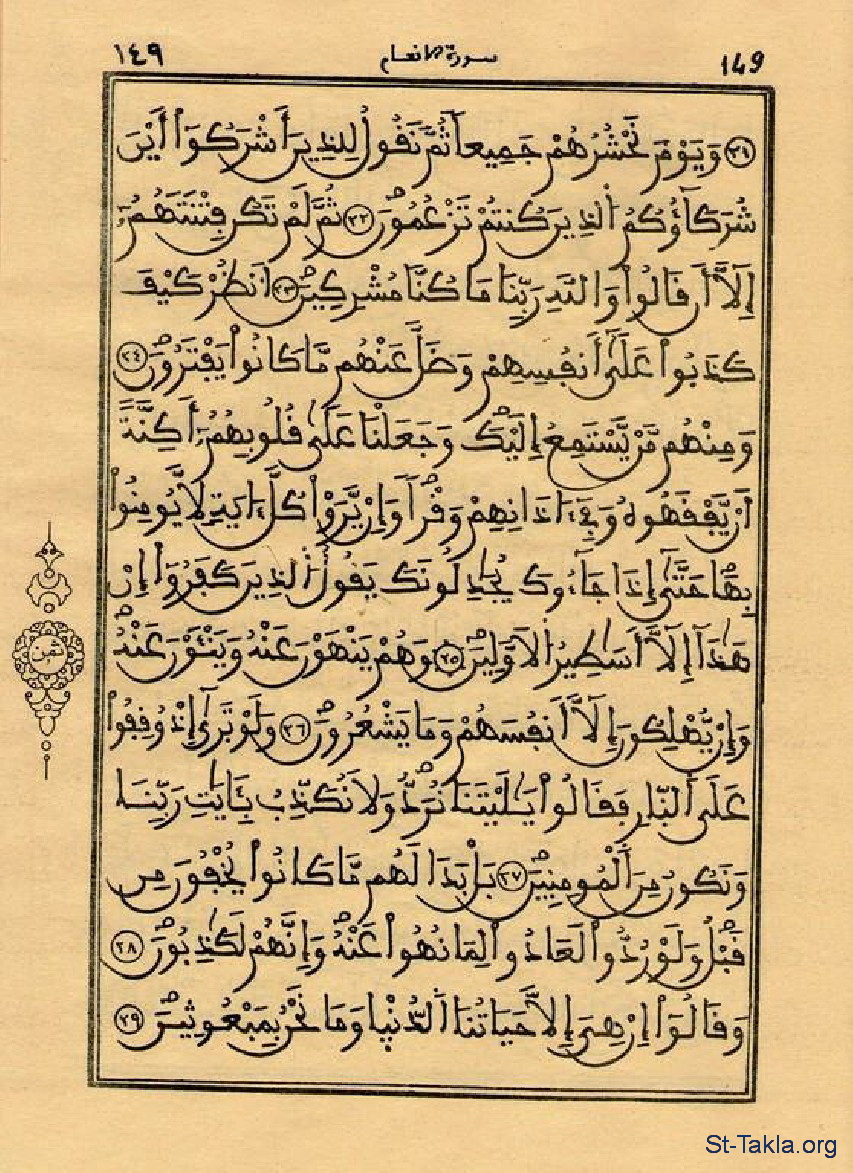 149 سورة الانعام ١٤٩
٢١ وَيَوْمَ نَحْشُرُهُمْ جَمِيعاً ثُمَّ نَقُولُ لِلذِينَ أَشْرَكُوٓاْ أَيْنَ
شُرَكَآؤُكُمُ الذِينَ كُنتُمْ تَزْعُمُونَۖ ٢٢ ثُمَّ لَمْ تَكُن فِتْنَتَهُمُۥٓ
إِلَّآ أَن قَالُواْ وَاللَّهِ رَبِّنَا مَا كُنَّا مُشْرِكِينَۖ ٢٣ اَنظُرْ كَيْفَ
كَذَبُواْ عَلَىٰٓ أَنفُسِهِمْ وَضَلَّ عَنْهُم مَّا كَانُواْ يَفْتَرُونَۖ ٢٤
وَمِنْهُم مَّنْ يَّسْتَمِعُ إِلَيْكَۖ وَجَعَلْنَا عَلَىٰ قُلُوبِهِمُۥٓ أَكِنَّةً
أَنْ يَّفْقَهُوهُ وَفِےٓ ءَاذَانِهِمْ وَقْراً وَإِنْ يَّرَوْاْ كُلَّ ءَايَةٍ لَّا يُومِنُواْ
بِهَاۖ حَتَّىٰٓ إِذَا جَآءُوكَ يُجَٰدِلُونَكَ يَقُولُ الذِينَ كَفَرُوٓاْ إِنْ
هَٰذَآ إِلَّآ أَسَٰطِيرُ الَاوَّلِينَۖ ٢٥ وَهُمْ يَنْهَوْنَ عَنْهُ وَيَنْـَٔوْنَ عَنْهُۖ
وَإِنْ يُّهْلِكُونَ إِلَّآ أَنفُسَهُمْ وَمَا يَشْعُرُونَۖ ٢٦ وَلَوْ تَرَىٰٓ إِذْ وُقِفُواْ
عَلَى اَلنَّارِ فَقَالُواْ يَٰلَيْتَنَا نُرَدُّۖ وَلَا نُكَذِّبُ بِـَٔايَٰتِ رَبِّنَا
وَنَكُونُ مِنَ اَلْمُومِنِينَۖ ٢٧ بَلْ بَدَا لَهُم مَّا كَانُواْ يُخْفُونَ مِن
قَبْلُۖ وَلَوْ رُدُّواْ لَعَادُواْ لِمَا نُهُواْ عَنْهُۖ وَإِنَّهُمْ لَكَٰذِبُونَۖ ٢٨
وَقَالُوٓاْ إِنْ هِيَ إِلَّا حَيَاتُنَا اَلدُّنْيٜا وَمَا نَحْنُ بِمَبْعُوثِينَۖ ٢٩
ثمن
St-Takla.org